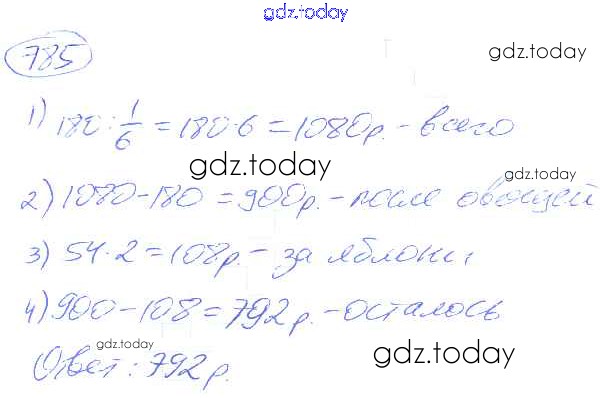 gdz.today
785
gdz.today
1) 180 : 1/6 = 180·6 = 1080р. – всего
gdz.today
gdz.today
2) 1080 – 180 = 900р. – после овощей
3) 54·2 = 108р. – за яблоки
4) 900 – 108 = 792р. – осталось
Ответ: 792р.
gdz.today